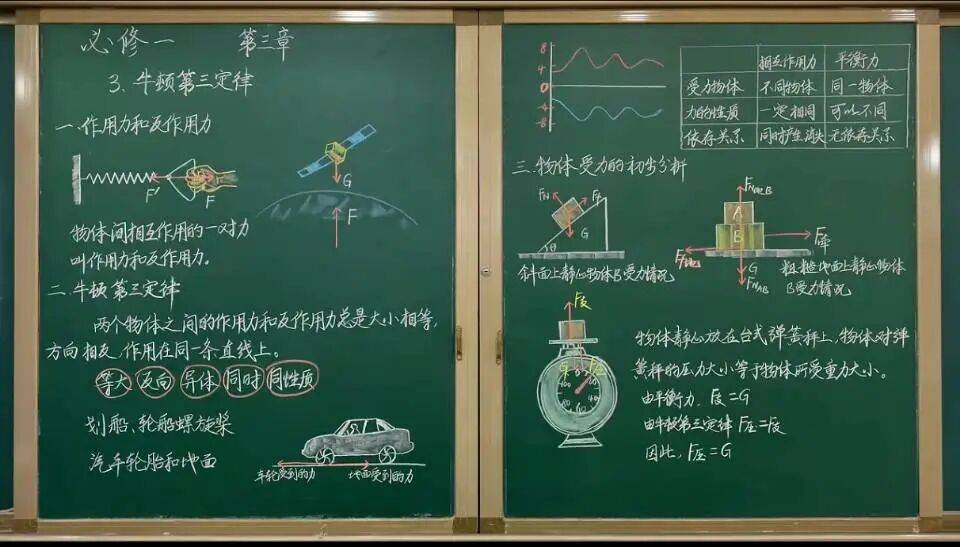 必修一 第三章
3.牛顿第三定律
一.作用力和反作用力
F' F
G
F
物体间相互作用的一对力
叫作用力和反作用力。
二.牛顿第三定律
两个物体之间的作用力和反作用力总是大小相等,
方向相反,作用在同一条直线上。
等大 反向 异体 同时 同性质
划船、轮船螺旋桨
汽车轮胎和地面
车轮受到的力 地面受到的力
8
4
0
-4
-8
相互作用力 平衡力
受力物体 不同物体 同一物体
力的性质 一定相同 可以不同
依存关系 同时产生消失 无依存关系
三.物体受力的初步分析
FN Ff
G
θ
斜面上静止物体B受力情况
FN地B
A
B
F拉
G
FNAB
粗糙地面上静止物体
B受力情况
F反
F压
物体静止放在台式弹簧秤上,物体对弹
簧秤的压力大小等于物体所受重力大小。
由平衡力,F反=G
由牛顿第三定律F压=F反
因此,F压=G